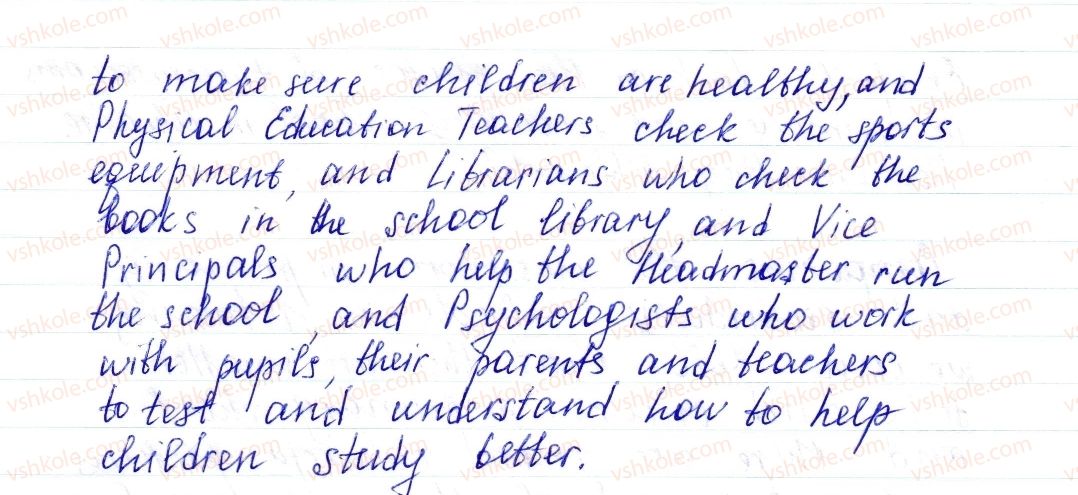 to make sure children are healthy, and
Physical Education Teachers check the sports
equipment, and Librarians who check the
books in the school library, and Vice
Principals who help the Headmaster run
the school, and Psychologists who work
with pupils, their parents and teachers
to test and understand how to help
children study better.